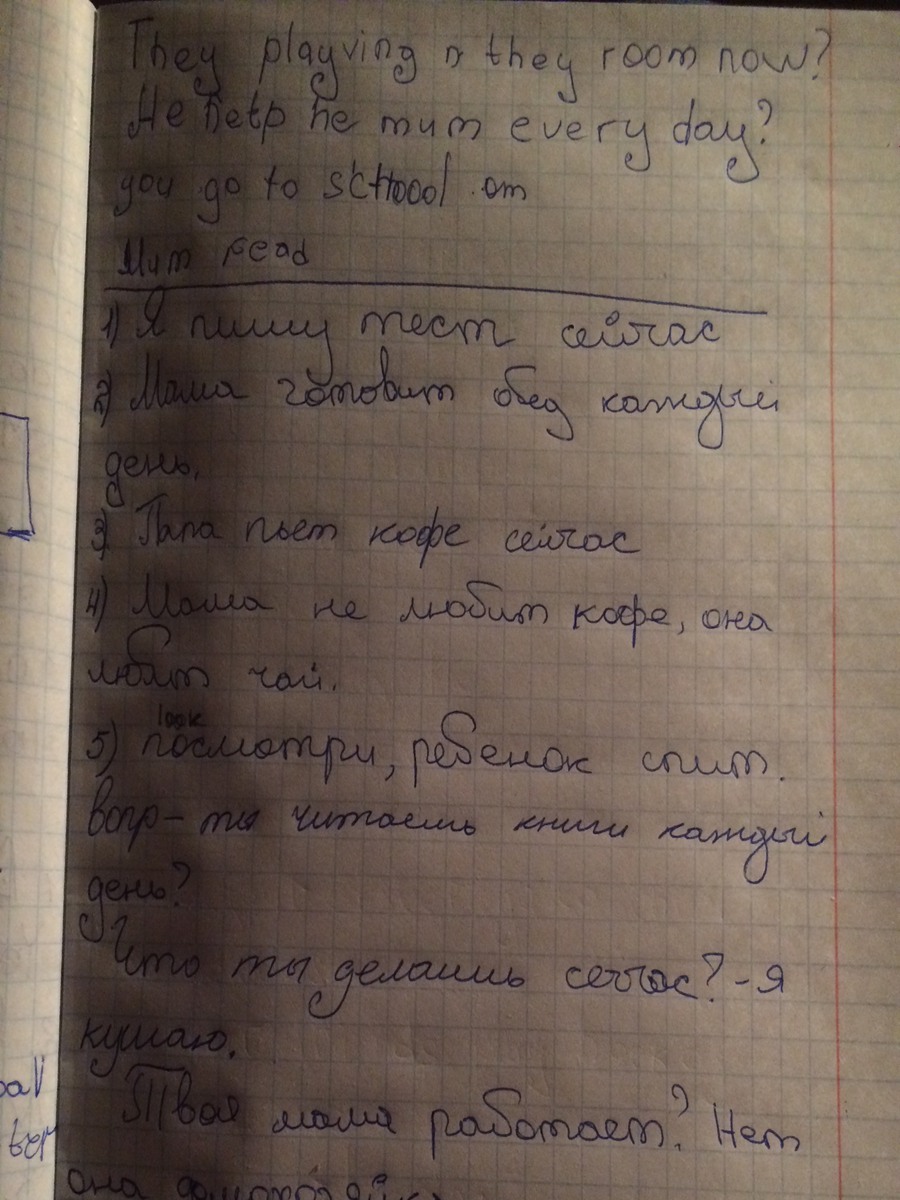 They playving n they room now?
He help he mum every day?
you go to schoool on
Mum read
1) Я пишу тест сейчас
2) Мама готовит обед каждый
день.
3) Папа пьет кофе сейчас
4) Мама не любит кофе, она
любит чай.
look
5) посмотри, ребенок спит.
вопр - ты читаешь книги каждый
день?
Что ты делаешь сейчас? - я
кушаю.
Твоя мама работает? Нет
она